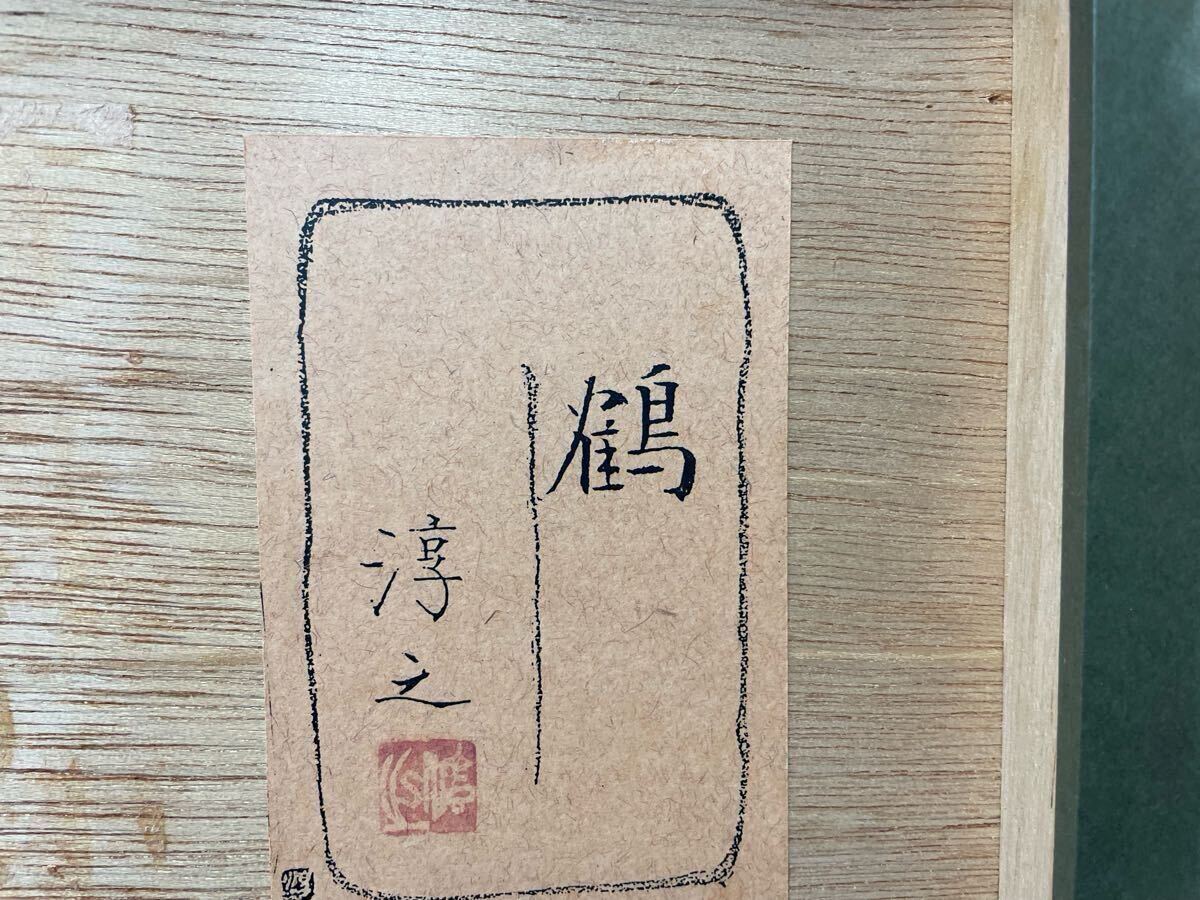 鶴
淳之